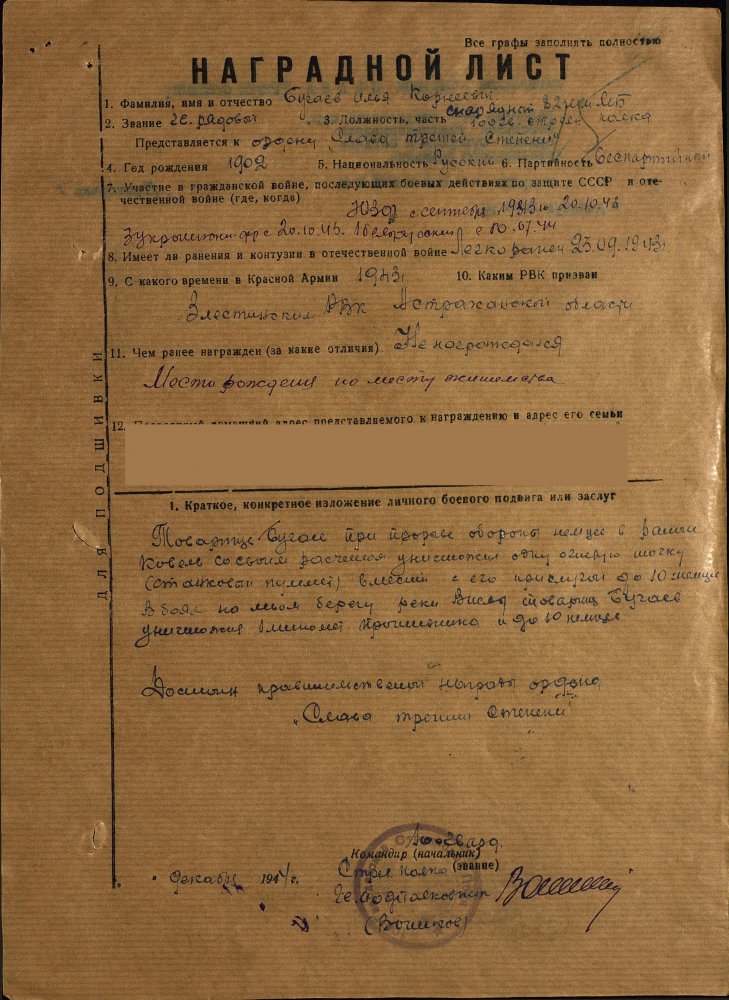 Все графы заполнять полностью
НАГРАДНОЙ ЛИСТ
1. Фамилия, имя и отчество Бугаев Илья Корнеевич
2. Звание гв. рядовой 3. Должность, часть 82 полка
Представляется к ордену „Слава третей Степени"
4. Год рождения 1902 5. Национальность Русский 6. Партийность беспартийный
7. Участие в гражданской войне, последующих боевых действиях по защите СССР и оте-
чественной войне (где, когда)
ЮЗФ с сентября 1943 20.10.43
3 Украинский фр с 20.10.43. 1 белорусский с 10.07.44
8. Имеет ли ранения и контузии в отечественной войне Легко ранен 23.09.1943г
9. С какого времени в Красной Армии 1943г 10. Каким РВК призван
РВК Астраханской области
11. Чем ранее награжден (за какие отличия) Не награждался
Место рождения по месту жительства
12. адрес представляемого к награждению и адрес его семьи
1. Краткое, конкретное изложение личного боевого подвига или заслуг
Бугаев при прорыве обороны немцев в районе
Ковель со своим расчетом уничтожил одну огневую точку
(станковый пулемет) вместе с его прислугой до 10 немцев
В боях на левом берегу реки Висла товарищ Бугаев
уничтожил 1 миномет и до 10 немцев
Достоин правительственной награды ордена
„Слава третей Степени"
ДЛЯ ПОДШИВКИ
гвард.
Командир (начальник)
Стрел полка (звание)
„ " декабря 1944 г. гв. подполковник